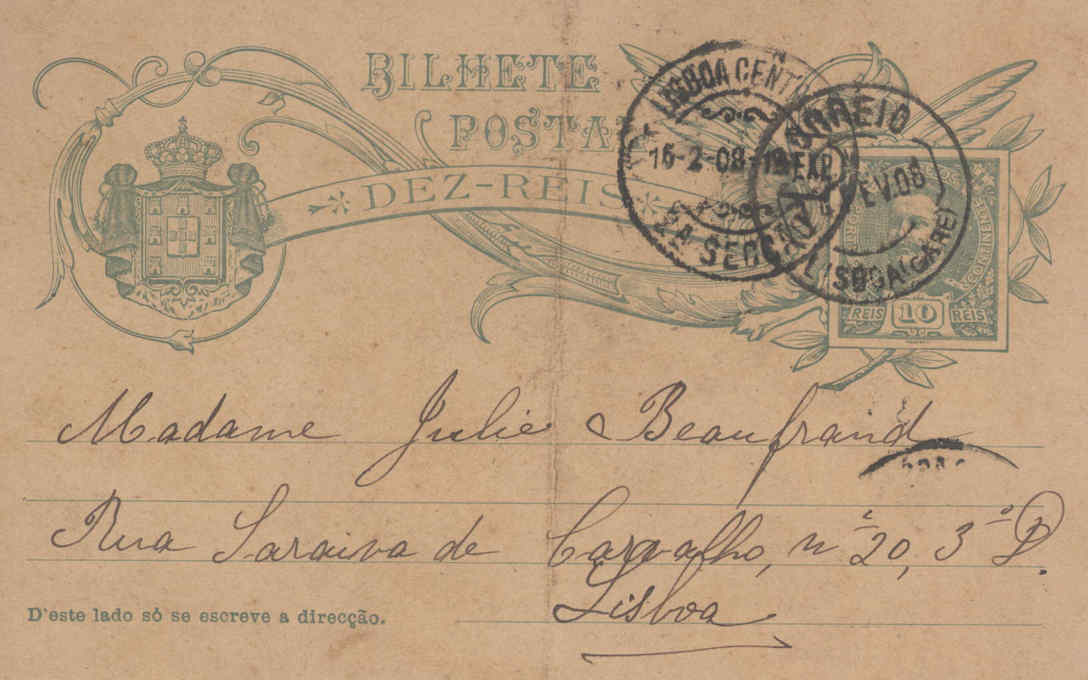 BILHETE
POSTAL
DEZ-REIS
LISBOA CENTRAL
15-2-08
2A SECÇÃO
CORREIO
EXP.
FEV.08
LISBOA (GARE)
REIS 10 REIS
Madame Julie Beaufraind
Rua Saraiva de Carvalho, nº 20, 3º D.
Lisboa
D'este lado só se escreve a direcção.